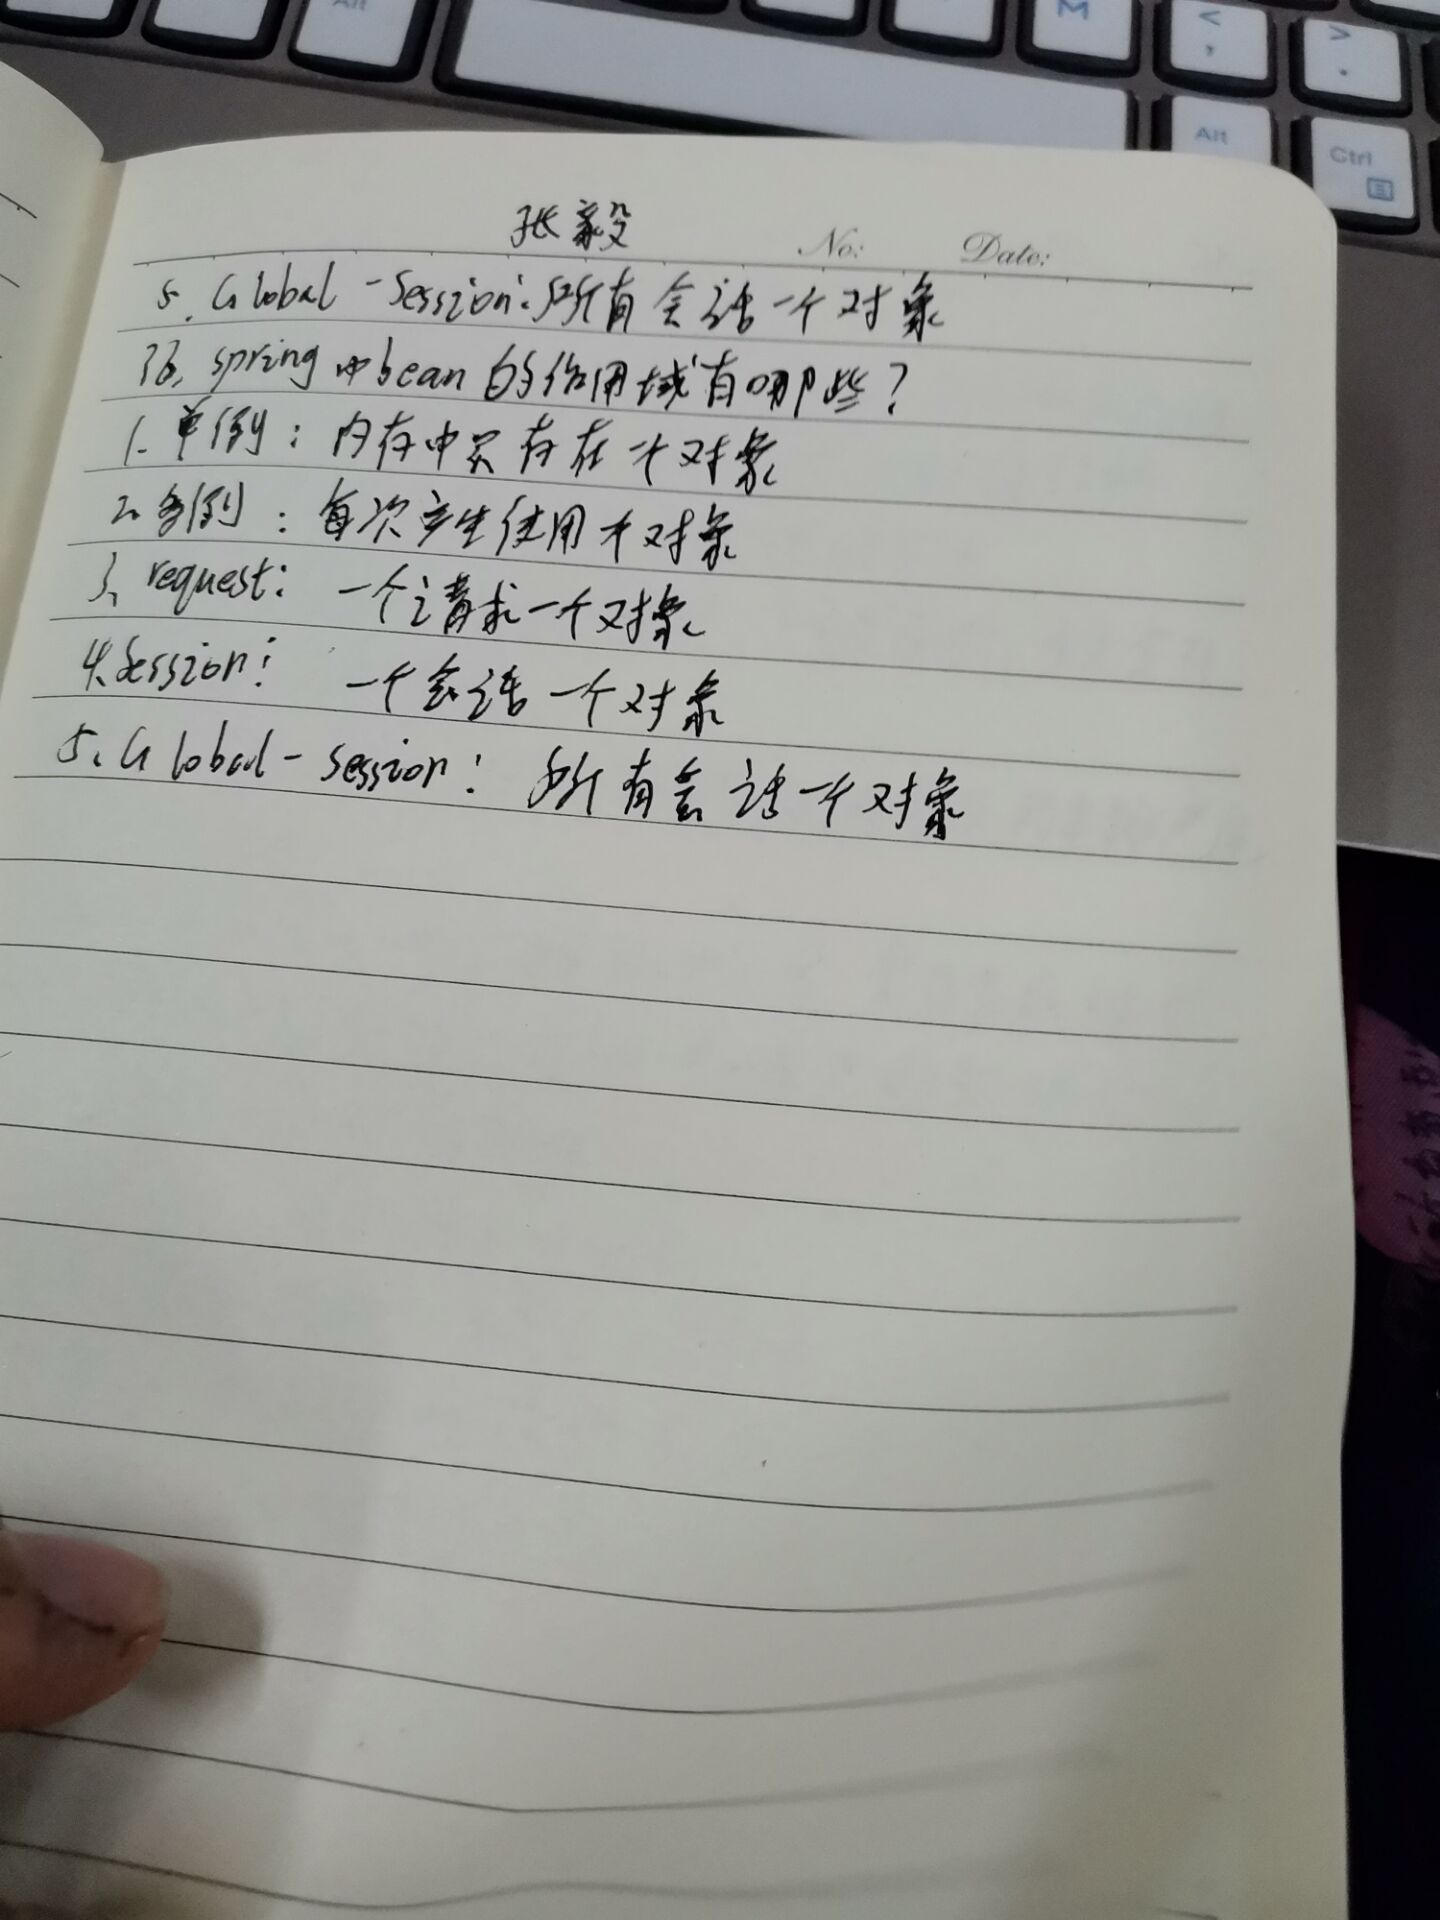 Alt
M
<
,
>
.
Alt
Ctrl
张毅
No:
Date:
5. Global-Session:所有会话一个对象
36、spring中bean的作用域有哪些?
1.单例:内存中只存在一个对象
2.多例:每次产生使用一个对象
3、request:一个请求一个对象
4.Session:一个会话一个对象
5.Global-session:所有会话一个对象